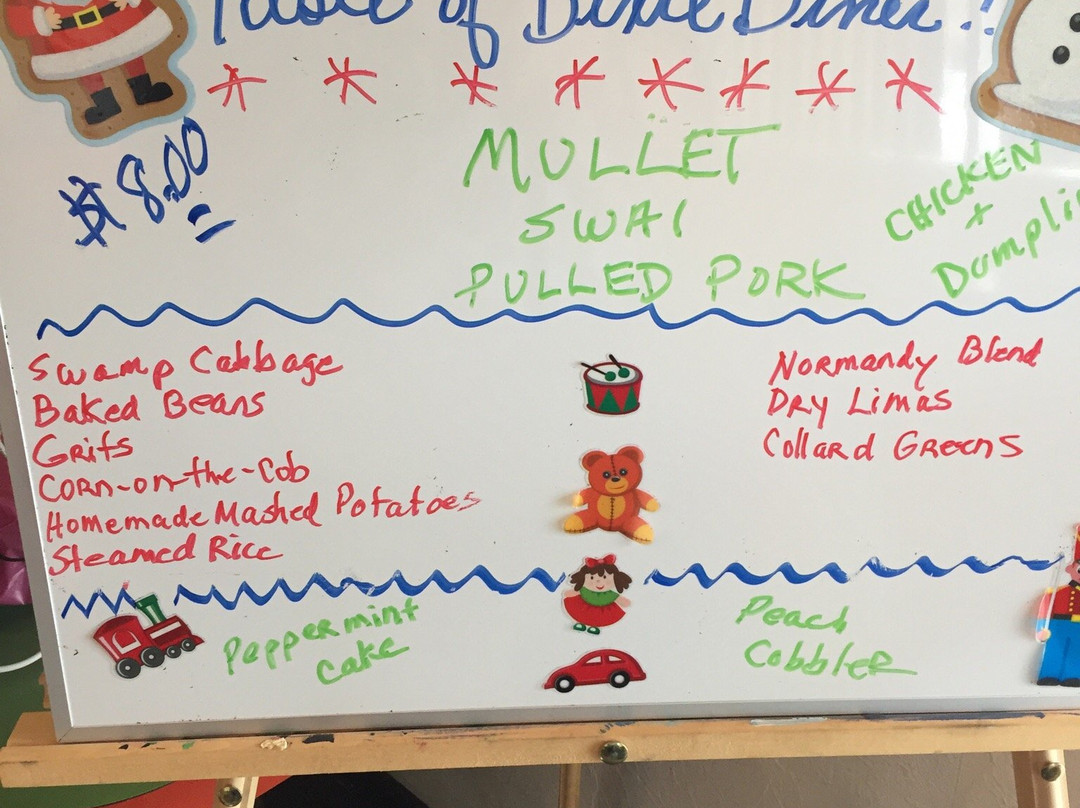 Taste of Dixie Diner!!
$8.00
MULLET
SWAI
PULLED PORK
CHICKEN
+
Dumpli
Swamp Cabbage
Baked Beans
Grits
Corn-on-the-Cob
Homemade Mashed Potatoes
Steamed Rice
Normandy Blend
Dry Limas
Collard Greens
Peppermint
Cake
Peach
Cobbler